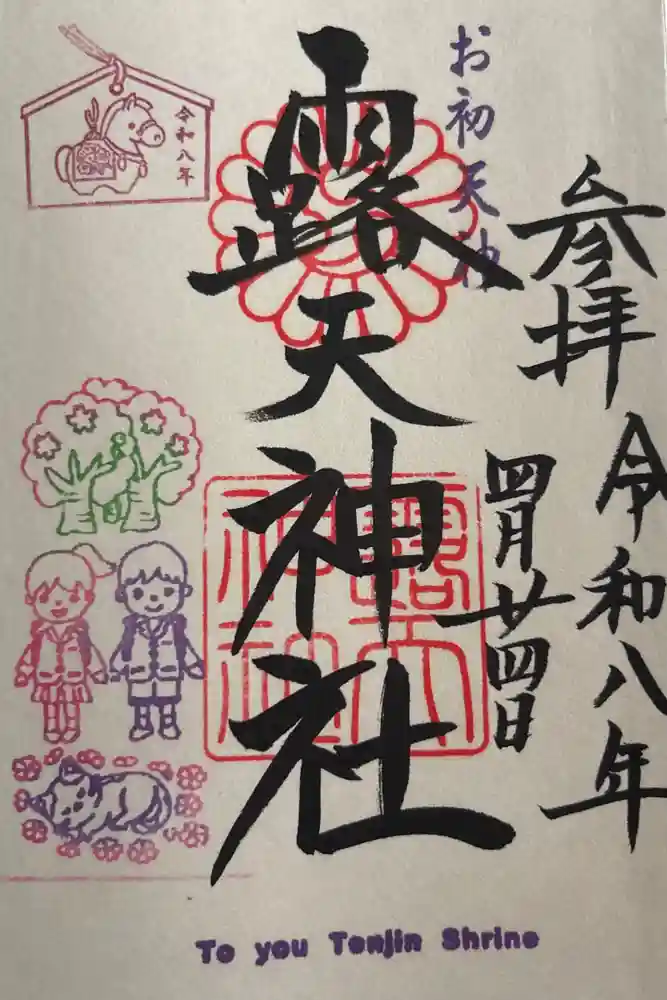 参拝
令和八年
四月廿四日
お初天神
露天神社
露天
神社
令和八年
To you Tenjin Shrine